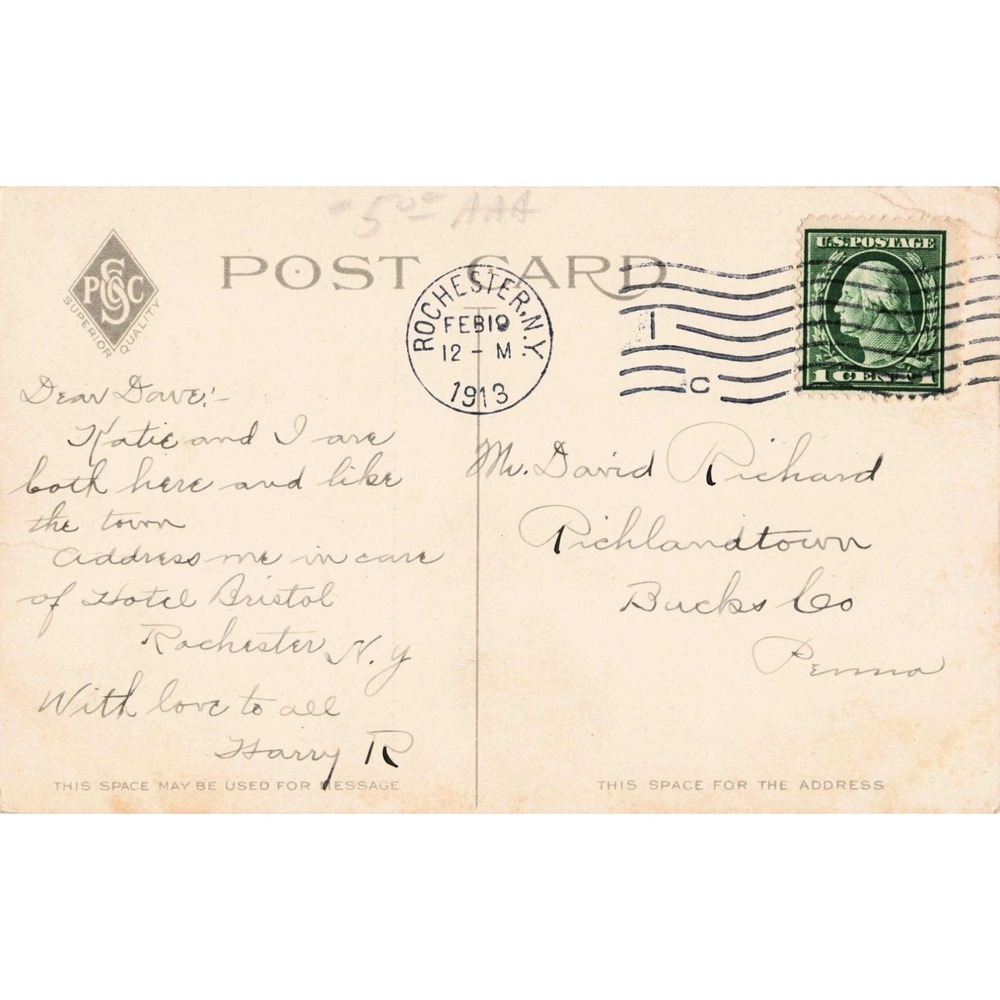 5⁰⁰ AAA
POST CARD
PCSCO
SUPERIOR QUALITY
ROCHESTER, N.Y.
FEB 19
12 - M
1913
1
C
U.S. POSTAGE
1 CENT 1
Dear Dave:-
Katie and I are
both here and like
the town
Address me in care
of Hotel Bristol
Rochester N.Y
With love to all
Harry R
THIS SPACE MAY BE USED FOR MESSAGE
Mr. David Richard
Richlandtown
Bucks Co
Penna
THIS SPACE FOR THE ADDRESS